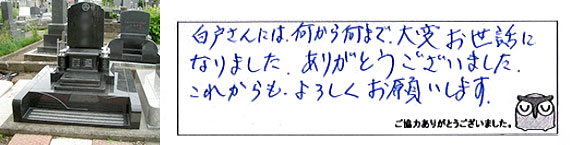 白戸さんには、何から何まで、大変お世話に
なりました。ありがとうございました。
これからも、よろしくお願いします。
ご協力ありがとうございました。